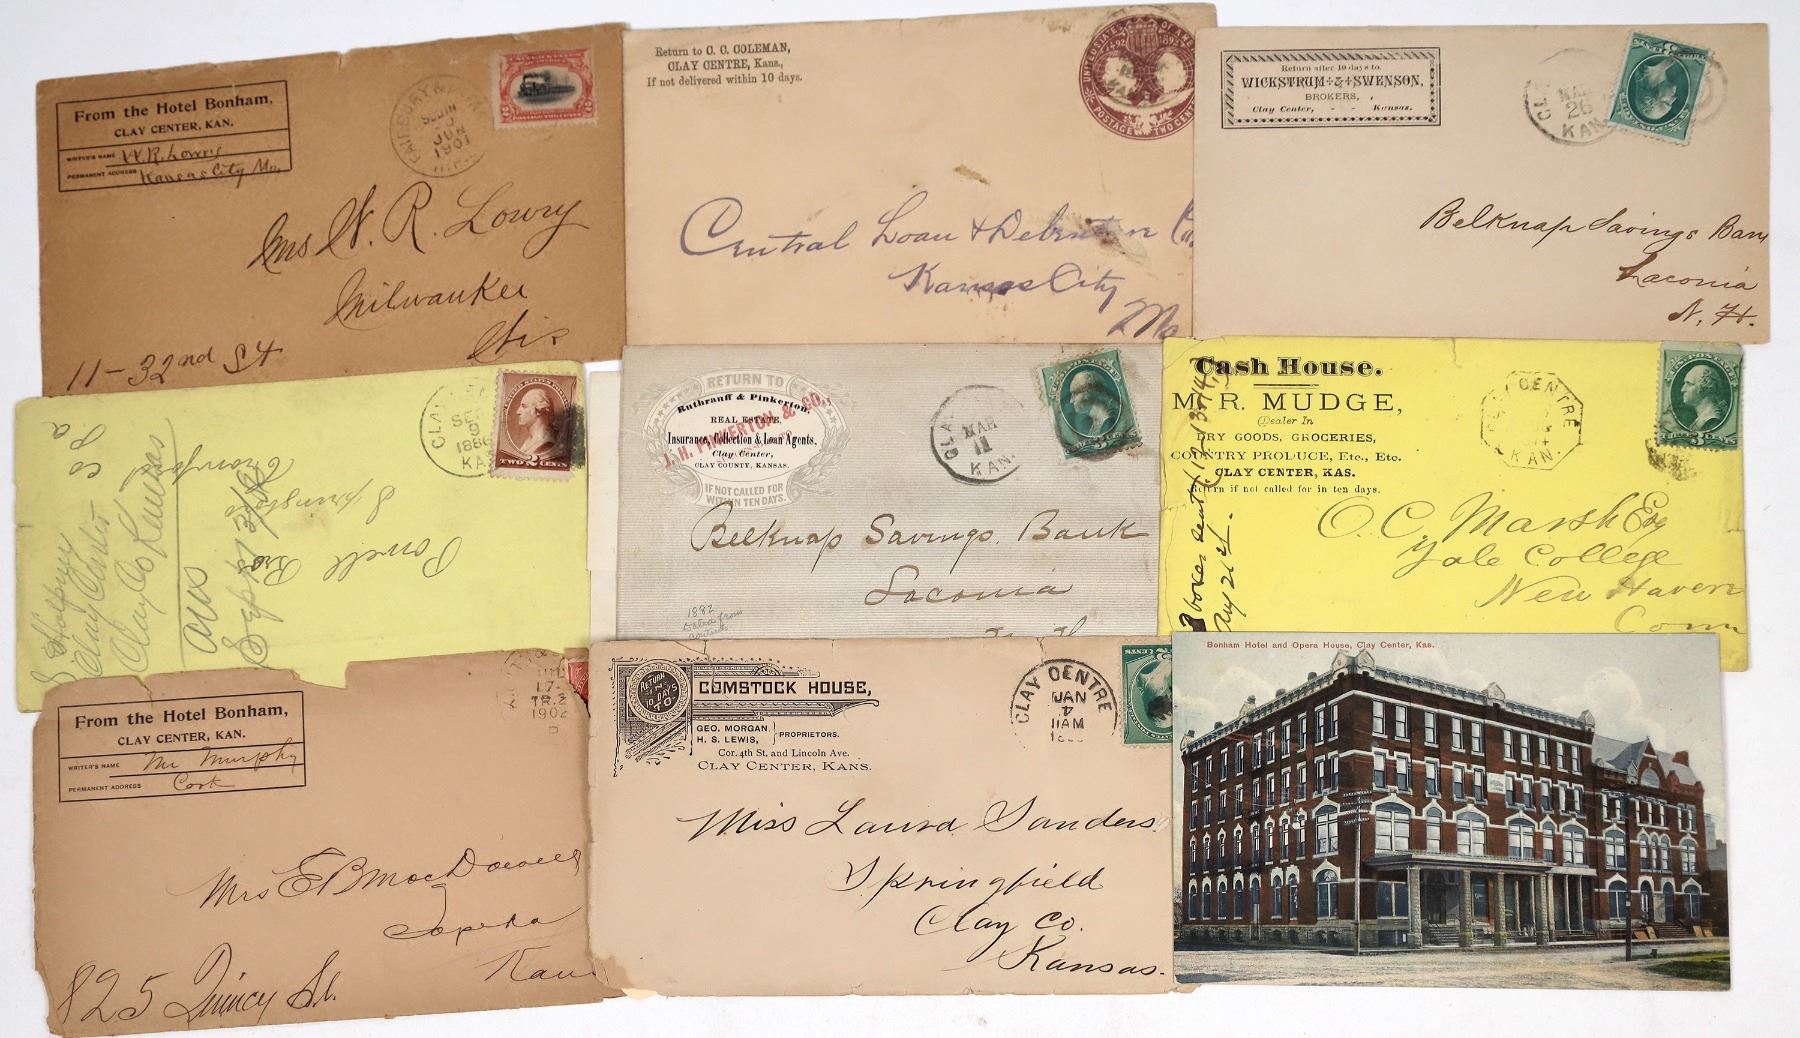 From the Hotel Bonham,
CLAY CENTER, KAN.
WRITER'S NAME W. R. Lowry
PERMANENT ADDRESS Kansas City Mo.
JUN
1901
Mrs W. R. Lowry
Milwaukee
Wis
11-32nd St
Return to C. C. COLEMAN,
CLAY CENTRE, Kans.,
If not delivered within 10 days.
UNITED STATES OF AMERICA
1492 1892
POSTAGE TWO CENTS
Central Loan & Debenture Co.
Kansas City
Mo
Return after 10 days to.
WICKSTRUM & SWENSON,
BROKERS,
Clay Center, - - Kansas.
CLA
MAR
26
KAN
Belknap Savings Bank
Laconia
N. H.
CLAY
SEP
9
1886
KAN
TWO 2 CENTS
Powell Bro
Springboro
Crawford
Co
Pa
Clay Center
Clay Co Kansas
Ans
Sep 13/86
RETURN TO
Ruthrauff & Pinkerton,
REAL ESTATE,
Insurance, Collection & Loan Agents,
J. H. PINKERTON & CO.,
Clay Center,
CLAY COUNTY, KANSAS.
IF NOT CALLED FOR
WITHIN TEN DAYS.
CLAY
MAR
11
KAN.
Belknap Savings Bank
Laconia
1882
Dated from
contents
Cash House.
M. R. MUDGE,
Dealer In
DRY GOODS, GROCERIES,
COUNTRY PRODUCE, Etc., Etc.
CLAY CENTER, KAS.
Return if not called for in ten days.
CENTRE
KAN.
O. C. Marsh Esq
Yale College
New Haven
Conn
boxes sent
Aug 21st.
From the Hotel Bonham,
CLAY CENTER, KAN.
WRITER'S NAME Mr Murphy
PERMANENT ADDRESS Cook
17-
TR.2
1902
Mrs E B MacDowell
Topeka
Kans
825 Quincy St.
RETURN
IN
10 DAYS
TO
COMSTOCK HOUSE,
GEO. MORGAN
H. S. LEWIS, PROPRIETORS.
Cor. 4th St. and Lincoln Ave.
CLAY CENTER, KANS.
CLAY CENTRE
JAN
7
11AM
Miss Laura Sanders
Springfield
Clay Co.
Kansas.
Bonham Hotel and Opera House, Clay Center, Kas.